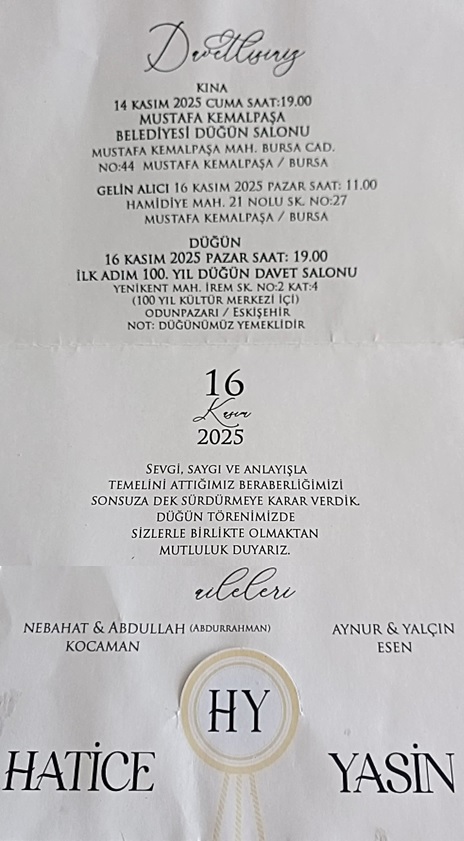 Davetlisiniz
KINA
14 KASIM 2025 CUMA SAAT:19.00
MUSTAFA KEMALPAŞA
BELEDİYESİ DÜĞÜN SALONU
MUSTAFA KEMALPAŞA MAH. BURSA CAD.
NO:44 MUSTAFA KEMALPAŞA / BURSA
GELİN ALICI 16 KASIM 2025 PAZAR SAAT: 11.00
HAMİDİYE MAH. 21 NOLU SK. NO:27
MUSTAFA KEMALPAŞA / BURSA
DÜĞÜN
16 KASIM 2025 PAZAR SAAT: 19.00
İLK ADIM 100. YIL DÜĞÜN DAVET SALONU
YENİKENT MAH. İREM SK. NO:2 KAT:4
(100 YIL KÜLTÜR MERKEZİ İÇİ)
ODUNPAZARI / ESKİŞEHİR
NOT: DÜĞÜNÜMÜZ YEMEKLİDİR
16
Kasım
2025
SEVGİ, SAYGI VE ANLAYIŞLA
TEMELİNİ ATTIĞIMIZ BERABERLİĞİMİZİ
SONSUZA DEK SÜRDÜRMEYE KARAR VERDİK.
DÜĞÜN TÖRENİMİZDE
SİZLERLE BİRLİKTE OLMAKTAN
MUTLULUK DUYARIZ.
aileleri
NEBAHAT & ABDULLAH (ABDURRAHMAN)
KOCAMAN
AYNUR & YALÇIN
ESEN
HY
HATİCE
YASİN